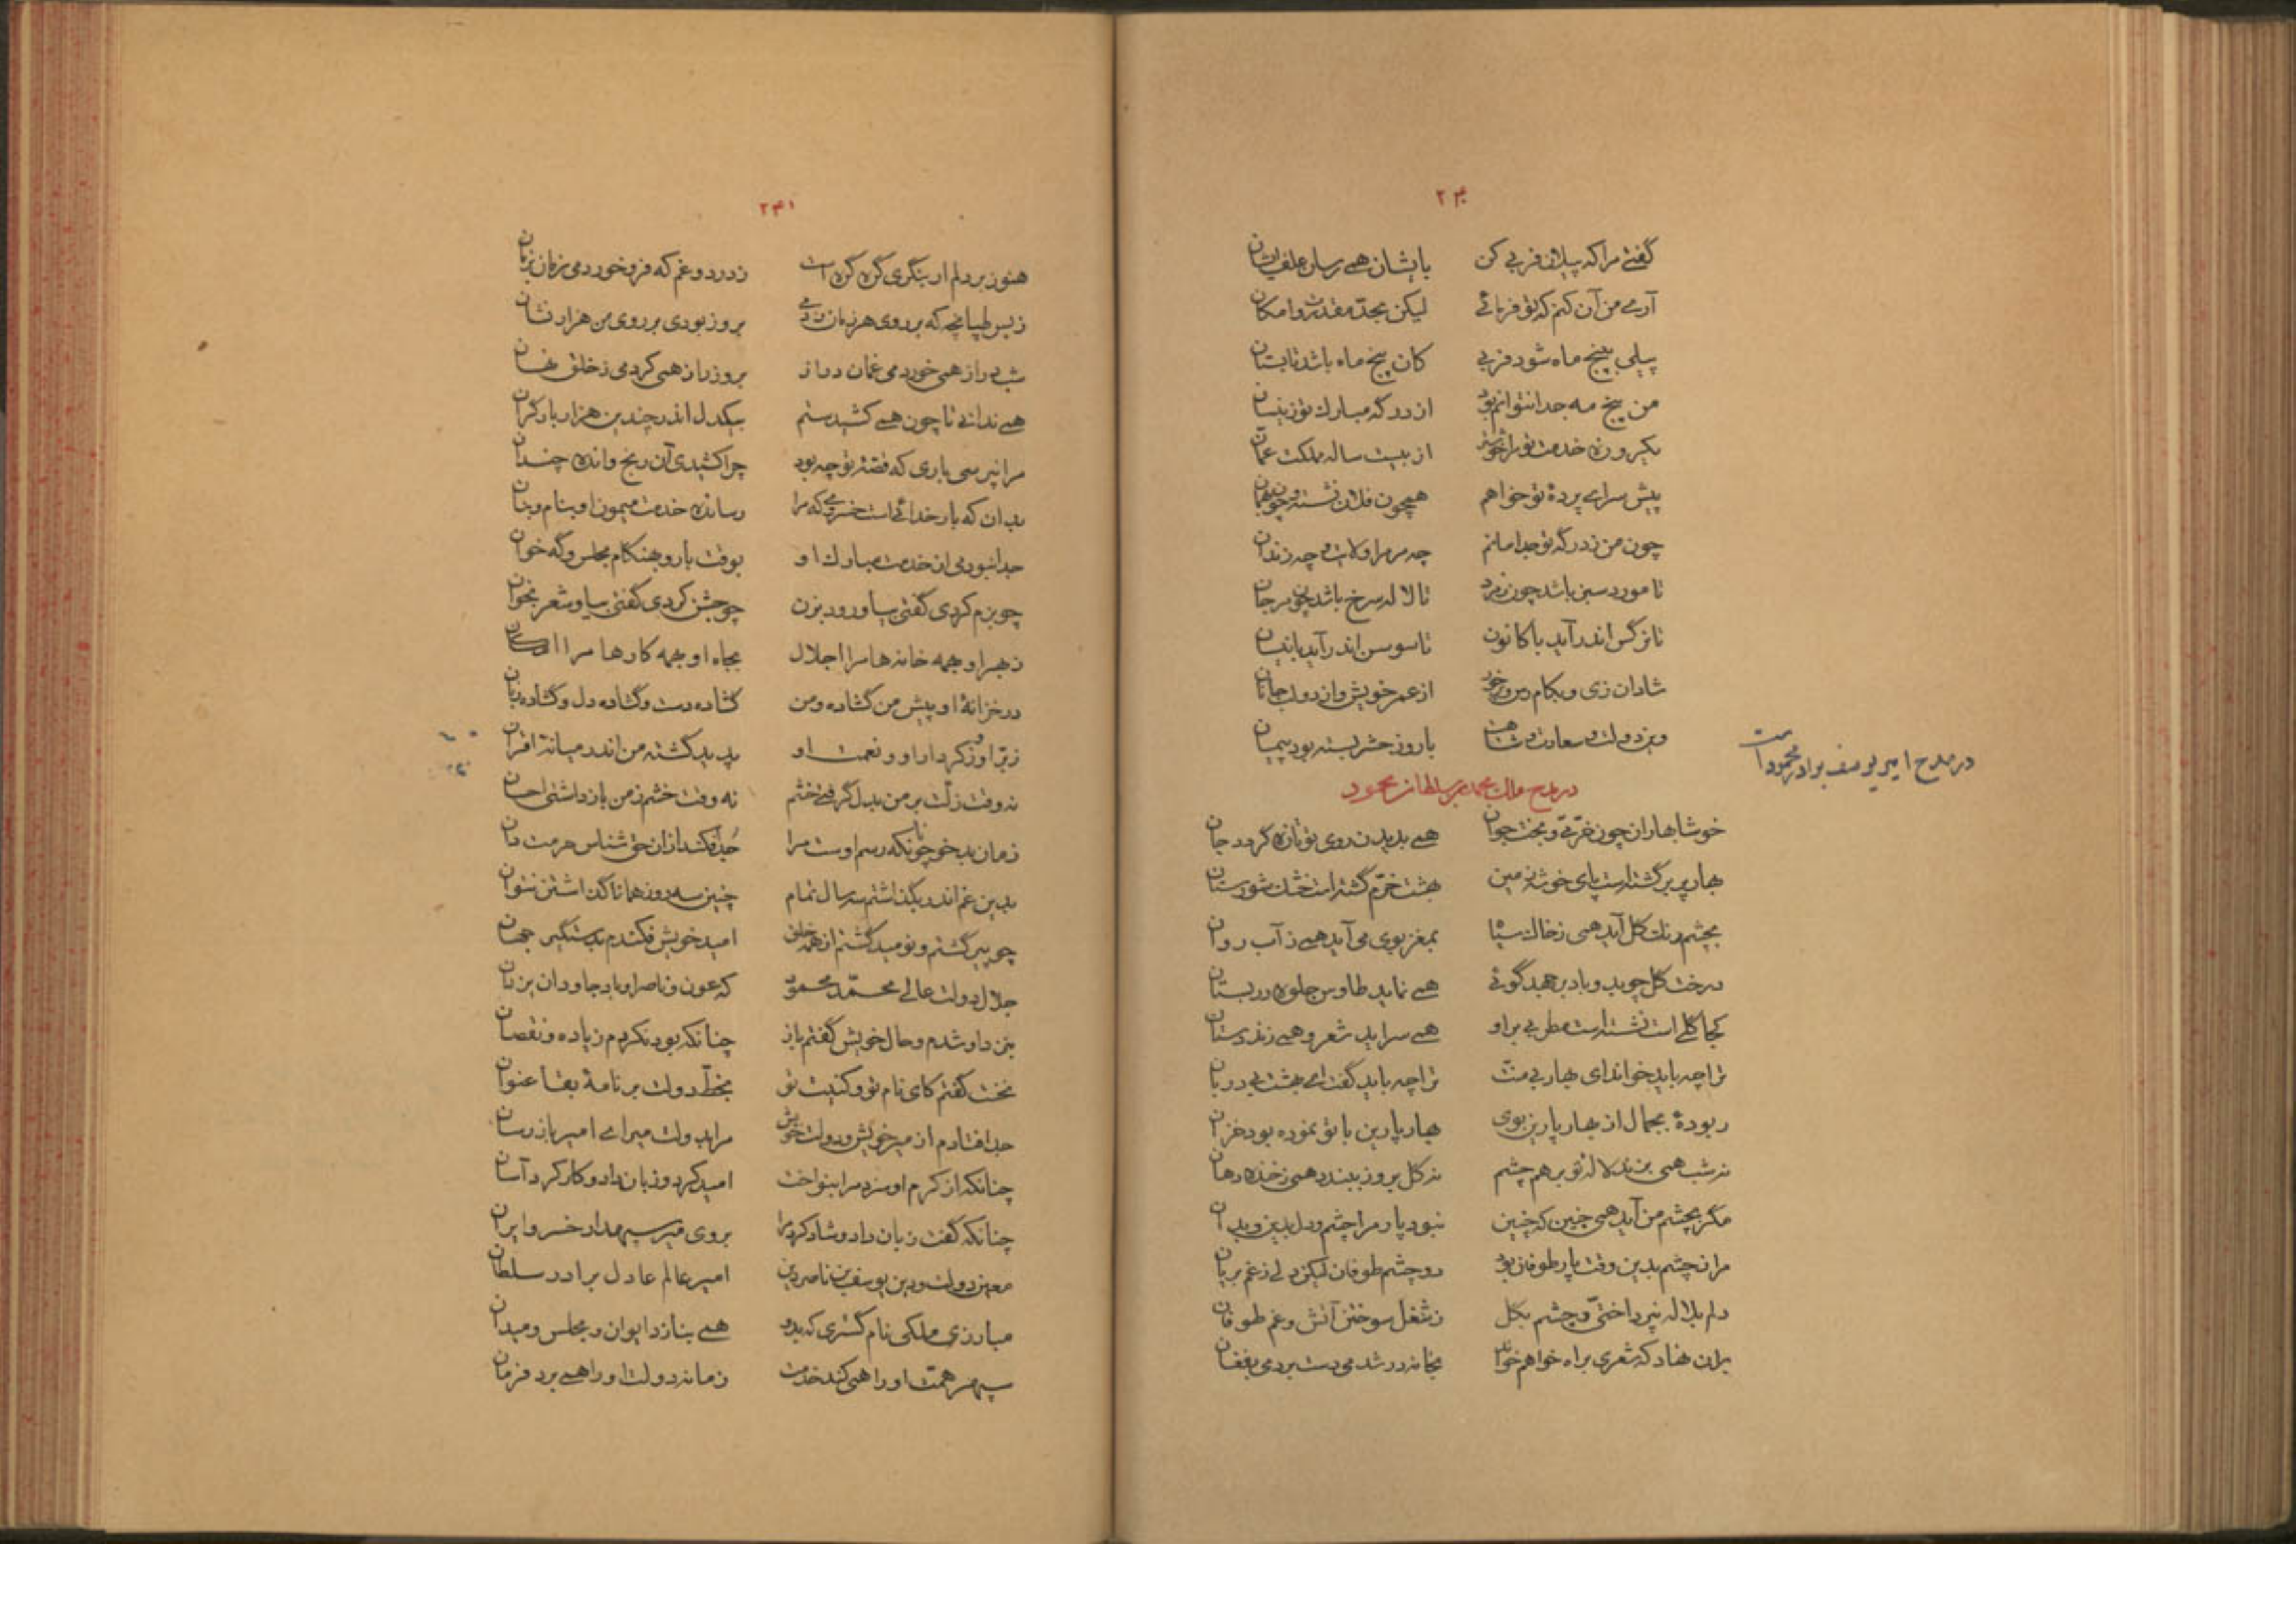 ۲۴۰
گفتی مرا که پیلان فربی کن بایشان همی رسان علف ایشان
آرے من آن کنم که تو فرمائی لیکن بحد مقدرت و امکان
پیلی به پنج ماه شود فربی کان پنج ماه باشد تابستان
من پنج مه جدا نتوانم بود از درگه مبارک تو زینسان
یکروزه خدمت تو مرا خوشتر از بیست ساله مملکت عمان
پیش سرای پردهٔ تو خواهم همچون فلان نشسته و چون بهمان
چون من ز درگه تو جدا مانم چه مر مرا ولایت و چه زندان
تا مورد سبز باشد چون زمرد تا لاله سرخ باشد چون مرجان
تا نرگس اندر آید با کانون تا سوسن اندر آید با نیسان
شادان زی و بکام رس و برخور از عمر خویش و از دو لب جانان
وین دولت و سعادت تا روز حشر بسته بود پیمان
در مدح امیر یوسف برادر محمود است
در مدح ملک محمد بن سلطان محمود
خوشا بهاران چون خرّمیّ و بخت جوان همی بدیدن روی تو تازه گردد جان
بهار پربر گشته است پای خوش زمین بهشت خرّم گشته است خشک شورستان
بچشم رنگ گل آید همی ز خاک سیاه بمغز بوی می آید همی ز آب روان
درخت گل چوید و باد برجهد گوئی همی نماید طاوس جلوه در بستان
کجا گلی است نشسته است مطربی بر او همی سراید شعر و همی زند دستان
ترا چه باید خواند ای بهار بی منّت ترا چه باید گفت ای بهشت بی دربان
ربودهٔ بجمال از بهار پارین بوی بهار پارین با تو نموده بود خزان
نه شب همی بزند لاله تو بر هم چشم نه گل بروز ببندد همی ز خنده دهان
مگر بچشم من آید همی چنین که چنین نبود پار مرا چشم و دل بدین و بدان
مرا نه چشم بدین وقت پار طوفان بود دو چشم طوفان لیکن دلی ز غم بریان
دلم بلاله نپرداختی و چشم بگل ز شغل سوختن آتش و غم طوفان
بدان نهاد که شعری براه خواهم خواند بخانه در شدمی دست بردمی بفغان
۲۴۱
هنوز بر دلم ار بنگری گره گره است ز درد و غم که فرو خوردمی زمان بزمان
ز بس طپانچه که بر روی هر زمان زدمی بروز بودی بر روی من هزار نشان
شب دراز همی خوردمی غمان دراز بروز راز همی کردمی ز خلق نهان
همی ندانی تا چون همی کشید ستم بیکدل اندر چندین هزار بار گران
مرا نپرسی باری که قصهٔ تو چه بود چرا کشیدی آن رنج و انده چندان
بدان که بار خدائی است خسروی که مرا رسانده خدمت میمون او بنام و بنان
جدا نبودمی از خدمت مبارک او بوقت بار و بهنگام مجلس و گه خوان
چو بزم کردی گفتی بیا و رود بزن چو جشن کردی گفتی بیا و شعر بخوان
ز بهر او بهمه خانه ها مرا اجلال بجاه او بهمه کارها مرا
در خزانهٔ او پیش من گشاده و من گشاده دست و گشاده دل و گشاده زبان
ز برّ او و ز کردار او و نعمت او پدید گشته من اندر میانهٔ اقران
نه وقت زلّت بر من بدل گرفتی خشم نه وقت خشم ز من باز داشتی احسان
زمان بدخو چونانکه رسم اوست مرا جدا فکند از آن حق شناس حرمت دان
بدین غم اندر بگذاشتم سه سال تمام چنین سه روز همانا گذاشتن نتوان
چو پیر گشتم و نومید گشتم از همه خلق امید خویش فکندم بدستگیر جهان
جلال دولت عالی محمّد محمود که عون و ناصر او باد جاودان یزدان
بنزد او شدم و حال خویش گفتم باز چنانکه بود نکردم زیاده و نقصان
نخست گفتم کای نام تو و کنیت تو بخطّ دولت بر نامهٔ بقا عنوان
جدا فتادم از میر خویش و دولت خویش مرا بدولت میرا ے امیر باز رسان
چنانکه از کرم او سزد مرا بنواخت امید کرد و زبان داد و کار کرد آسان
چنانکه گفت زبان داد و شاد کرد مرا بروی میر سپهدار خسرو ایران
معین دولت و دین یوسف بن ناصر دین امیر عالم عادل برادر سلطان
مبارزی ملکی نام گستری که بدو همی بنازد ایوان و مجلس و میدان
سپهر همّت او را همی کند خدمت زمانه دولت او را همی برد فرمان